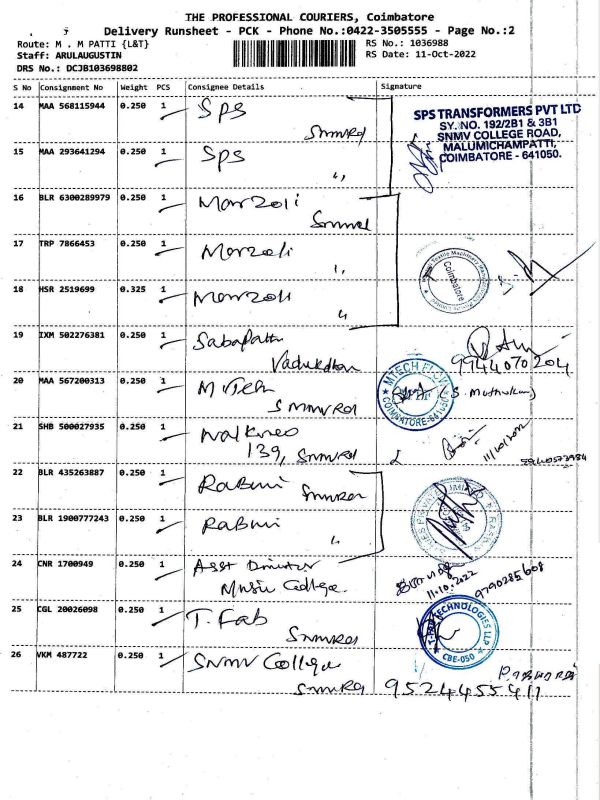 THE PROFESSIONAL COURIERS, Coimbatore
Delivery Runsheet - PCK - Phone No.:0422-3505555 - Page No.:2
Route: M . M PATTI {L&T}
RS No.: 1036988
Staff: ARULAUGUSTIN
RS Date: 11-Oct-2022
DRS No.: DCJB103698802
S No Consignment No Weight PCS Consignee Details Signature
14 MAA 568115944 0.250 1 SPS
SNMVRd
SPS TRANSFORMERS PVT LTD
SY. NO. 192/2B1 & 3B1
SNMV COLLEGE ROAD,
MALUMICHAMPATTI,
COIMBATORE - 641050.
15 MAA 293641294 0.250 1 SPS
"
16 BLR 6300289979 0.250 1 Marzoli
SNMVRd
17 TRP 7866453 0.250 1 Marzoli
"
18 HSR 2519699 0.325 1 Marzoli
"
Coimbatore
19 IXM 502276381 0.250 1 Sabapathi
9944070204
20 MAA 567200313 0.250 1 M Tech
SNMVRd
MTECH
COIMBATORE-641050
21 SHB 500027935 0.250 1
139, SNMVRd
11/10/2022
22 BLR 435263887 0.250 1 RABWI
SNMVRd
23 BLR 1900777243 0.250 1 RABWI
"
24 CNR 1700949 0.250 1 Asst Director
Music College
11.10.2022
9790285608
25 CGL 20026098 0.250 1 T. Fab
SNMVRd
T-FAB TECHNOLOGIES LLP
CBE-050
26 VKM 487722 0.250 1 SNMV College
SNMVRd
9524455411